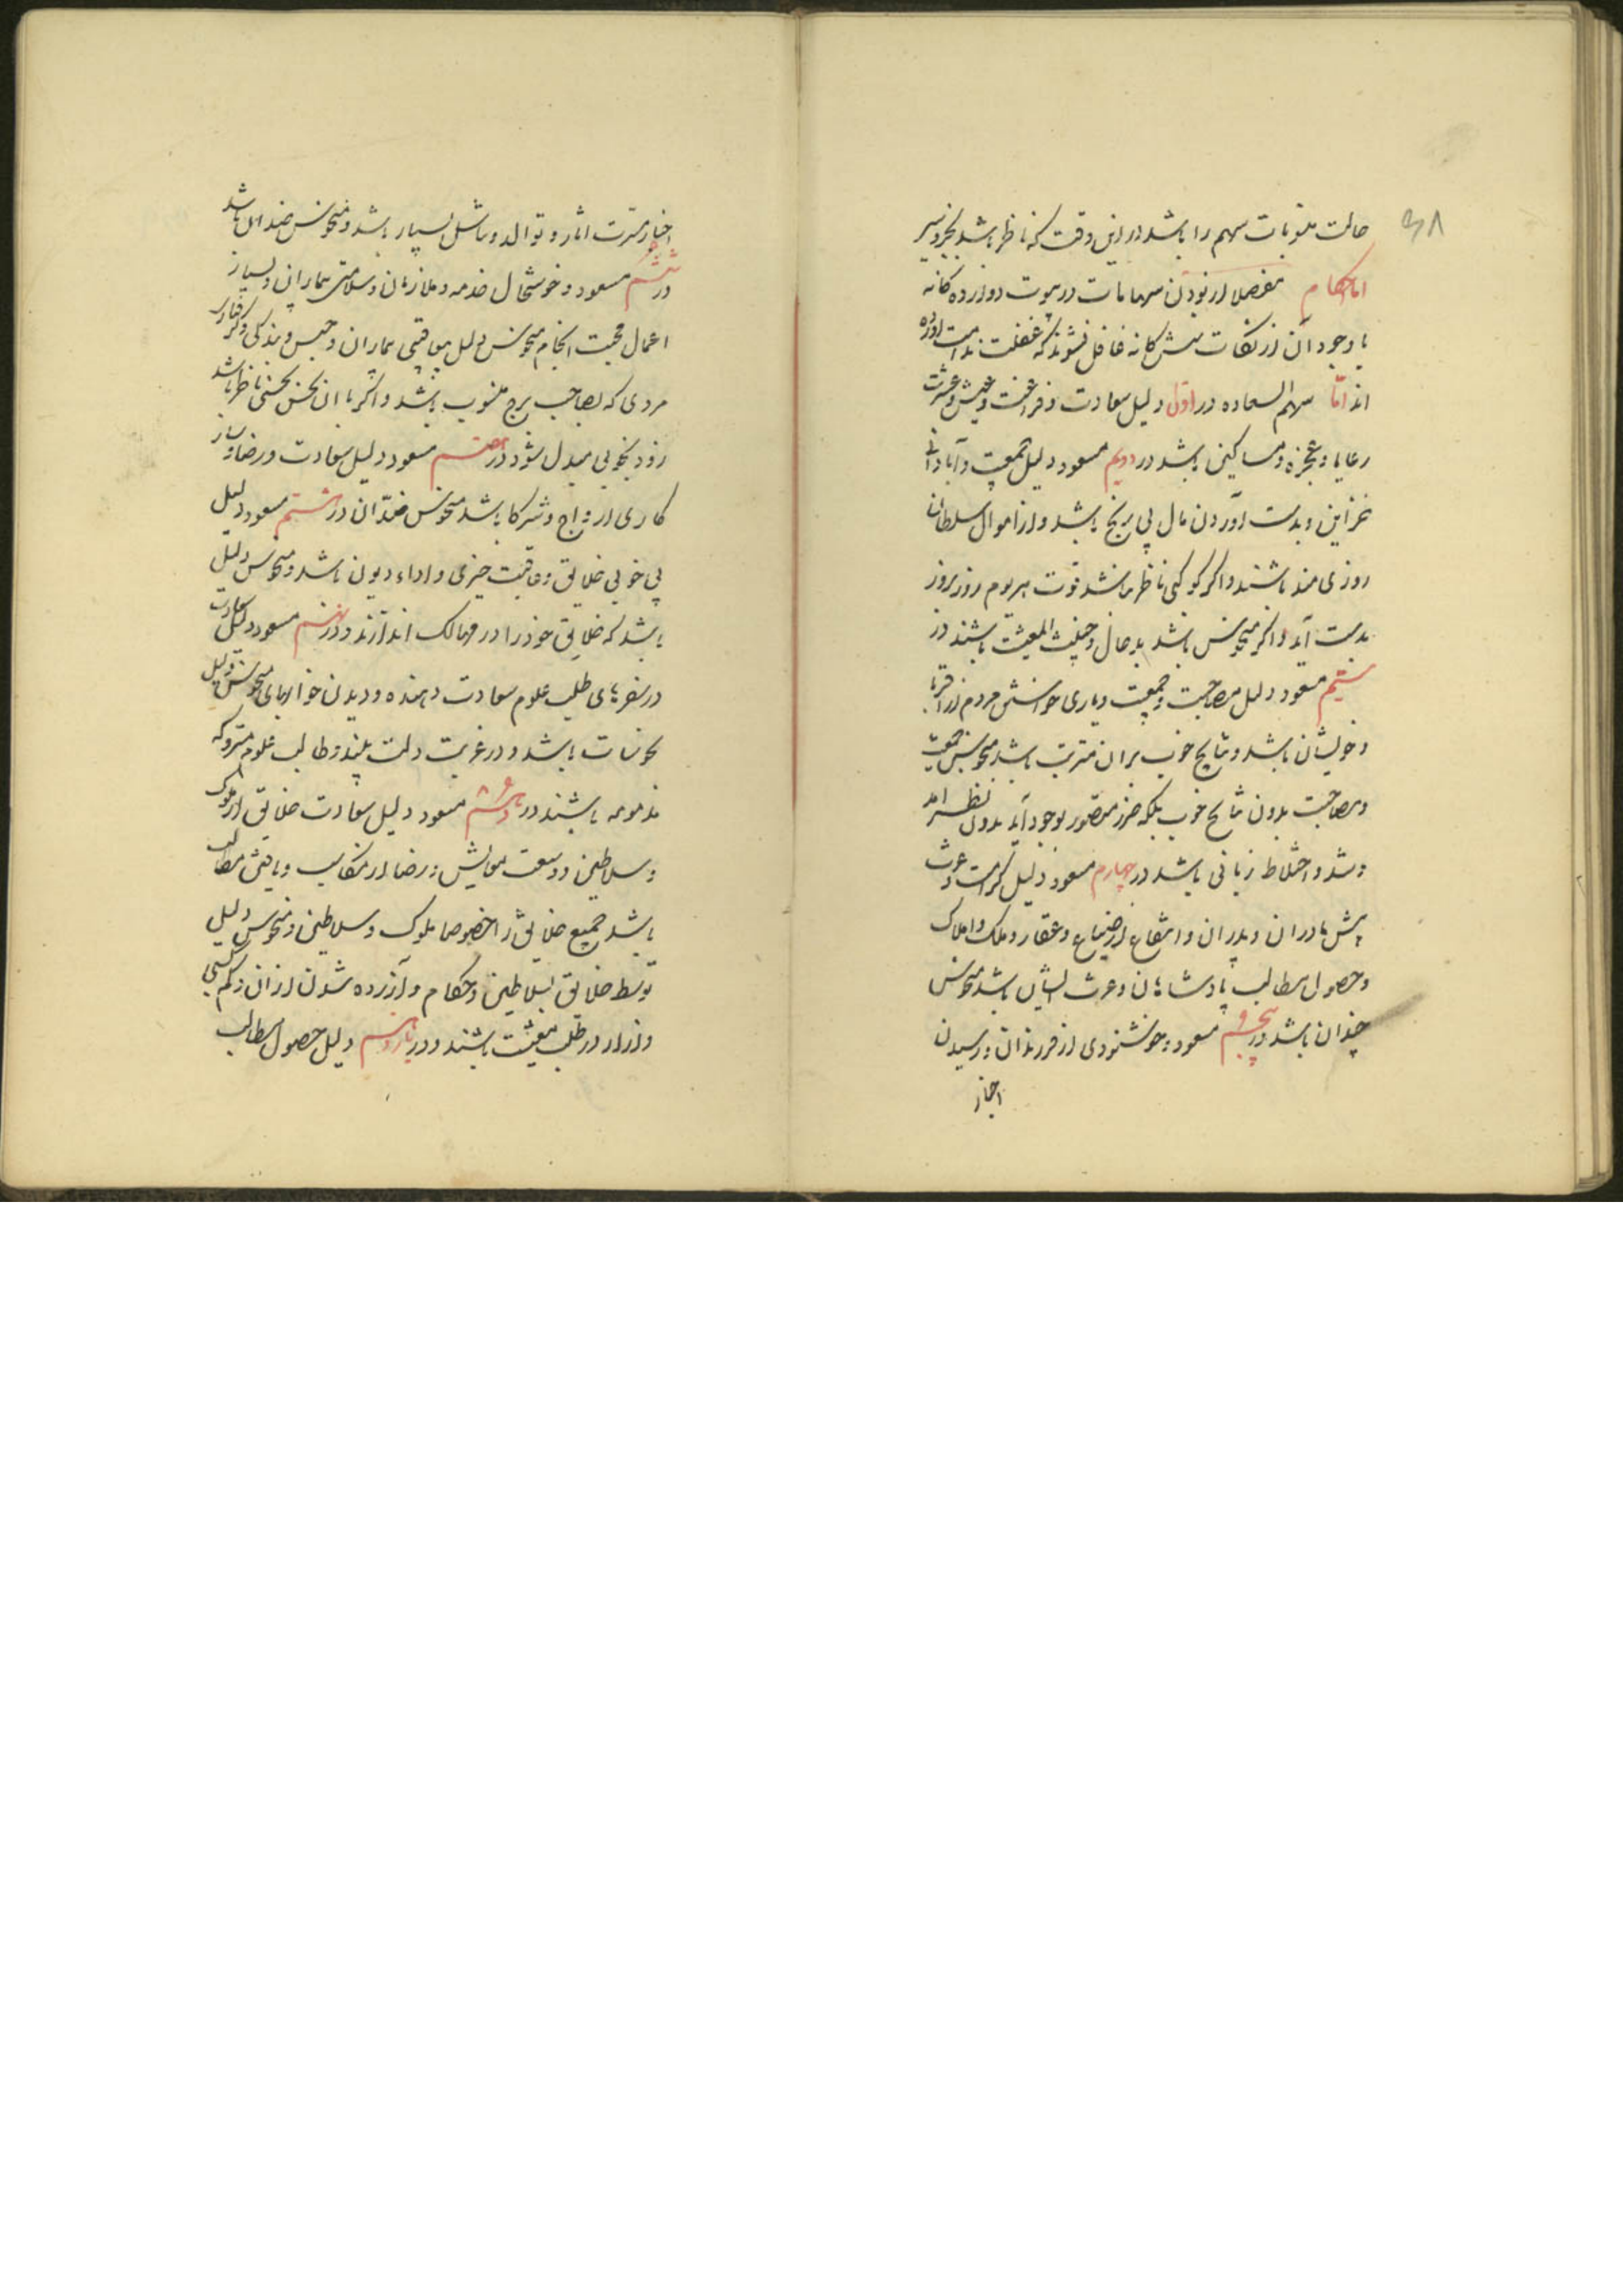 ۳۸
حالت منوبات سهم را باشد در این وقت که ناظر باشد بخیر و نیر
اما احکام مفصلا از بودن سهامات در بیوت دوازده کانه
با وجود آن از نکات شش کانه غافل نشوند که غفلت ندامت اورده
اند اما سهم السعاده در اول دلیل سعادت و فراغت و عیش و عشرت
رعایا و عجزه و مساکین باشد در دویم مسعود دلیل جمعیت و آبادانی
خزاین و بدست آوردن مال بی رنج باشد و از اموال سلطان
روزی مند باشند و اگر کوکبی ناظر نباشد قوت هر یوم روز بروز
بدست آید و اگر منحوس باشد بد حال و المعیشت باشند در
سیم مسعود دلیل مصاحبت و جمعیت و یاری خواستن مردم از اقربا
و خویشان باشد و نتایج خوب بران مترتب باشد منحوس جمعیت
و مصاحبت بدون نتایج خوب بلکه ضرر متصور بوجود آید بدون نظر
و شد و اختلاط زبانی باشد در چهارم مسعود دلیل کرامت و عزت
پیش مادران و پدران و انتفاع از ضیاع و عقار و ملک و املاک
و حصول مطالب پادشاهان و عزت ایشان باشد منحوس
چندان باشد در پنجم مسعود و خوشنودی از فرزندان و رسیدن
اخبار
اخبار مسرت اثار و توالد و تناسل بسیار باشد و منحوس ضد ان باشد
در ششم مسعود و خوشحال خدمه و ملازمان و سلامتی بیماران و بسیار
اعمال محبت انجام منحوس دلیل بیماران و حبس و بندگی و گرفتاری
مردی که بصاحب برج منسوب باشد و اگر با ان نحس نحسی ناظر باشد
زود بخوبی مبدل شود در هفتم مسعود دلیل سعادت و رضا و ساز
کاری ازواج و شرکا باشد منحوس ضد ان در هشتم مسعود دلیل
بی خوبی خلایق و عاقبت خیری و اداء دیون باشد و منحوس دلیل
باشد که خلایق خود را در مهالک اندازند و در نهم مسعود دلیل سعادت
در سفرهای طلب علوم سعادت دهنده و دیدن خوابهای منحوس دلیل
نحوسات باشد و در غربت ذلت بیند و طالب علوم متروکه
مذمومه باشند در دهم مسعود دلیل سعادت خلایق از ملوک
و سلاطین و وسعت معایش و رضا از مکاسب و یافتن مطالب
باشد جمیع خلایق را خصوصا ملوک و سلاطین و منحوس دلیل
توسط خلایق بسلاطین و حکام و آزرده شدن از ان و کم کسبی
و ازار در طلب معیشت باشند و در یازدهم دلیل حصول مطالب